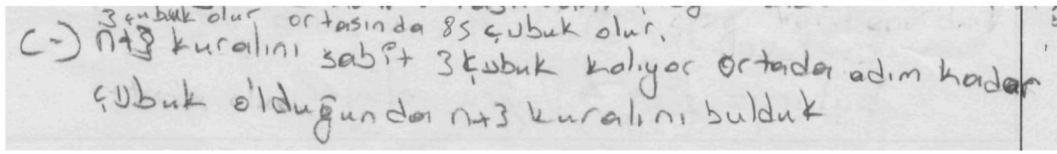 3 çubuk olur ortasında 85 çubuk olur.
C-) n+3 kuralını sabit 3 çubuk kalıyor ortada adım kadar
çubuk olduğunda n+3 kuralını bulduk